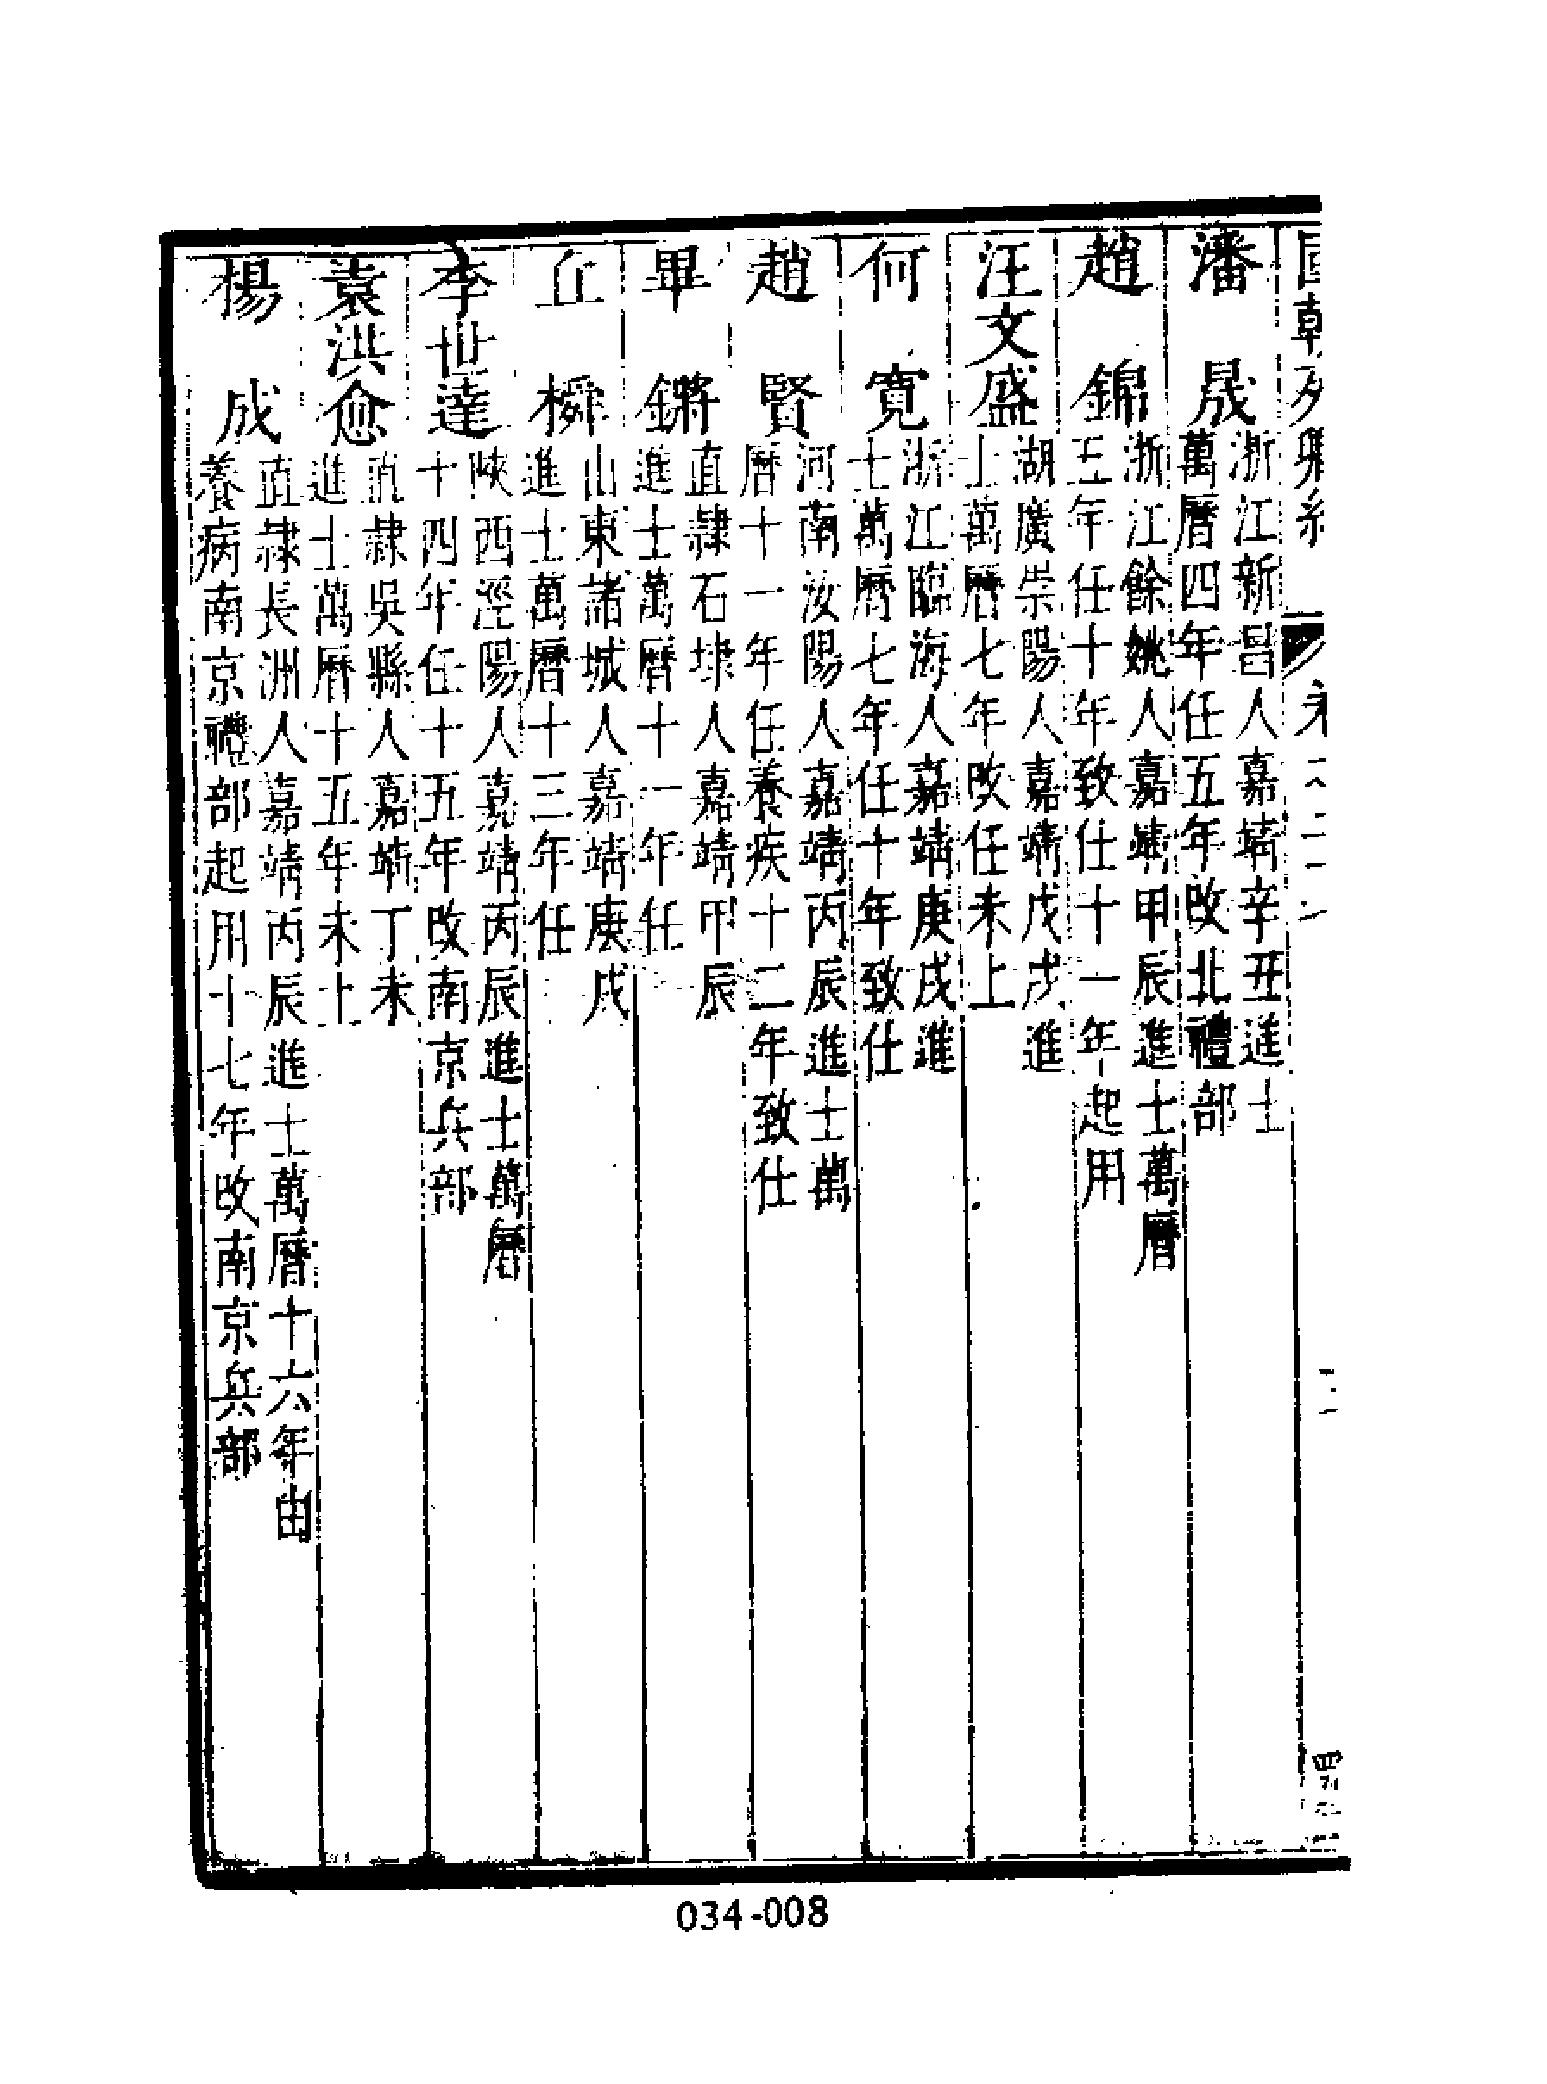 國朝列卿紀
潘 晟
浙江新昌人嘉靖辛丑進士
萬曆四年任五年改北禮部
趙 錦
浙江餘姚人嘉靖甲辰進士萬曆
五年任十年致仕十一年起用
汪文盛
湖廣崇陽人嘉靖戊戌進
士萬曆七年改任未上
何 寬
浙江臨海人嘉靖庚戌進
士萬曆七年任十年致仕
趙 賢
河南汝陽人嘉靖丙辰進士萬
曆十一年任養疾十二年致仕
畢 鏘
直隸石埭人嘉靖甲辰
進士萬曆十一年任
丘 橓
山東諸城人嘉靖庚戌
進士萬曆十三年任
李世達
陝西涇陽人嘉靖丙辰進士萬曆
十四年任十五年改南京兵部
袁洪愈
直隸吳縣人嘉靖丁未
進士萬曆十五年未上
楊 成
直隸長洲人嘉靖丙辰進士萬曆十六年由
養病南京禮部起用十七年改南京兵部
034-008